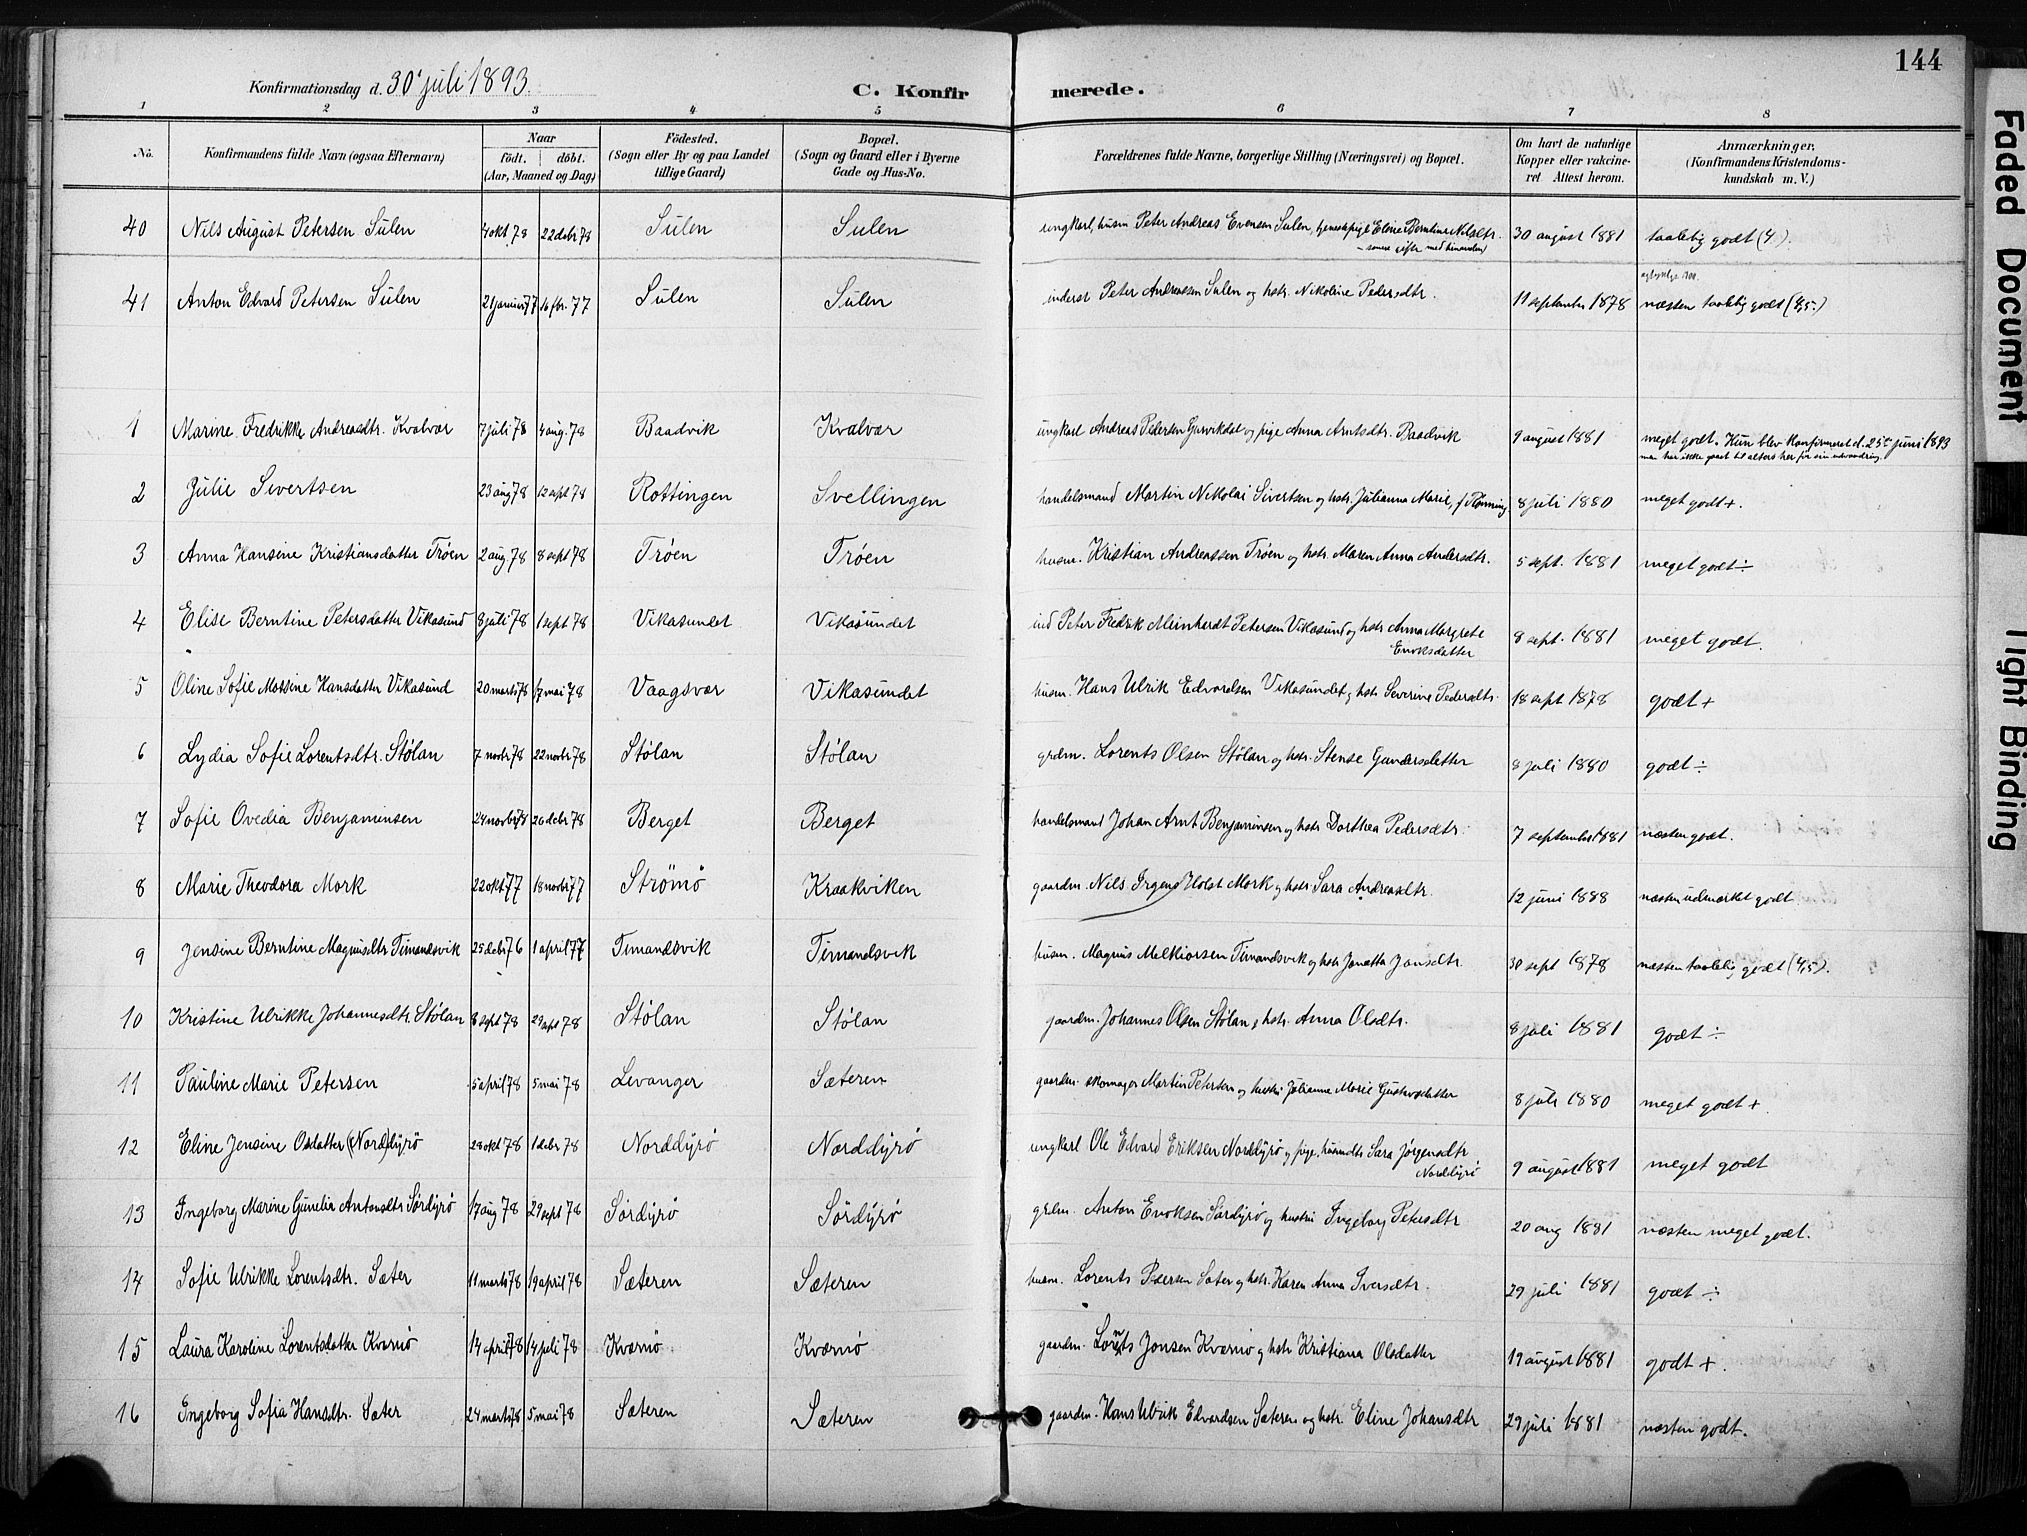 144
Konfirmationsdag d. 30 juli 1893.
C. Konfirmerede.
1 2 3 4 5 6 7 8
No. Konfirmandens fulde Navn (ogsaa Efternavn) Naar födt. döbt. (Aar, Maaned og Dag) Födested. (Sogn eller By og paa Landet tillige Gaard) Bopæl. (Sogn og Gaard eller i Byerne Gade og Hus-No. Forældrenes fulde Navne, borgerlige Stilling (Næringsvei) og Bopæl. Om havt de naturlige Kopper eller vakcineret Attest herom. Anmærkninger. (Konfirmandens Kristendomskundskab m. V.)
40 Nils August Petersen Sulen 4 okt 78 22 debr 78 Sulen Sulen ungkarl, husm Peter Andreas Evensen Sulen, tjenestepige Eline Berntine Nilsdtr. 30 august 1881 taalelig godt (4).
– senere gifte med hinanden)
41 Anton Edvard Petersen Sulen 21 januar 77 16 fbr. 77 Sulen Sulen inderst Peter Andreassen Sulen og hstr. Nikoline Pedersdtr. 11 september 1878 næsten taalelig godt (4,5.)
1 Marine Fredrikke Andreasdtr. Kvalvær 7 juli 78 4 aug. 78 Baadvik Kvalvær ungkarl Andreas Pedersen Gurvikdal og pige Anna Arntsdtr. Baadvik 9 august 1881 meget godt. Hun blev konfirmeret d. 25de juni 1893
men har ikke gaaet til alters her før sin udvandring.
2 Julie Sivertsen 23 aug 78 12 sept 78 Rottingen Svellingen handelsmand Martin Nikolai Sivertsen og hstr. Julianna Marie, f. Flønning 8 juli 1880 meget godt +.
3 Anna Hansine Kristiansdatter Trøen 2 aug 78 8 sept 78 Trøen Trøen husm. Kristian Andreassen Trøen og hstr. Maren Anna Andersdtr. 5 sept. 1881 meget godt ÷
4 Elise Berntine Petersdatter Vikasund 8 juli 78 1 sept 78 Vikasundet Vikasundet ind Peter Fredrik Meinhardt Petersen Vikasund og hstr Anna Margrete Enoksdatter 8 sept. 1881 meget godt.
5 Oline Sofie Motsine Hansdatter Vikasund 20 marts 78 17 mai 78 Vaagsvær Vikasundet husm. Hans Ulrik Edvardsen Vikasundet og hstr Severine Pedersdtr. 18 sept 1878 godt +
6 Lydia Sofie Lorentsdtr. Stølan 7 novbr 78 22 novbr 78 Stølan Stølan grdm. Lorents Olsen Stølan og hstr. Stense Gundersdatter 8 juli 1880 godt ÷
7 Sofie Ovedia Benjaminsen 24 novbr 78 26 debr 78 Berget Berget handelsmand Johan Arnt Benjaminsen og hstr Dorthea Pedersdtr. 7 september 1881 næsten godt.
8 Marie Theodora Mork 22 okt 77 18 novbr 77 Strömö Kraakviken gaardm. Nils Irgens Holst Mork og hstr. Sara Andreasdtr. 12 juni 1888 næsten udmærket godt
9 Jensine Berntine Magnusdtr Timandsvik 25 debr 76 1 april 77 Timandsvik Timandsvik husm. Magnus Melkiorsen Timandsvik og hstr Janetta Jonsdtr. 30 sept 1878 næsten taalelig godt (4,5).
10 Kristine Ulrikke Johannesdtr. Stølan 8 sept 78 29 sept 78 Stølan Stølan gaardm. Johannes Olsen Stølan og hstr. Anna Olsdtr. 8 juli 1881 godt ÷
11 Pauline Marie Petersen 5 april 78 5 mai 78 Levanger Sæteren gaardm. skomager Martin Petersen og hustru Julianne Marie Gustavsdatter 8 juli 1880 meget godt +.
12 Eline Jensine Olsdatter (Nord)dyrö 28 okt 78 1 debr 78 Norddyrö Norddyrö ungkarl Ole Edvard Eriksen Norddyrö og pige, husmdtr Sara Jörgensdtr Norddyrö 9 august 1881 meget godt
13 Ingeborg Marine Gunelia Antonsdtr Sördyrö 17 aug 78 29 sept 78 Sördyrö Sördyrö grdm. Anton Enoksen Sördyrö og hustru Ingeborg Petersdtr 20 aug 1881 næsten meget godt.
14 Sofie Ulrikke Lorentsdtr. Sæter 11 marts 78 19 april 78 Sæteren Sæteren husm. Lorents Pedersen Sæter og hstr. Karen Anna Iversdtr. 29 juli 1881 godt ÷
15 Laura Karoline Lorentsdatter Kværnö 14 april 78 14 juli 78 Kværnö Kværnö gaardm. Lorents Jonsen Kværnö og hstr Kristiana Olsdatter 19 august 1881 godt +.
16 Ingeborg Sofia Hansdtr. Sæter 24 marts 78 5 mai 78 Sæteren Sæteren gaardm. Hans Ulrik Edvardsen Sæteren og hstr. Eline Johansdtr 29 juli 1881 næsten godt.
Faded Document
Tight Binding